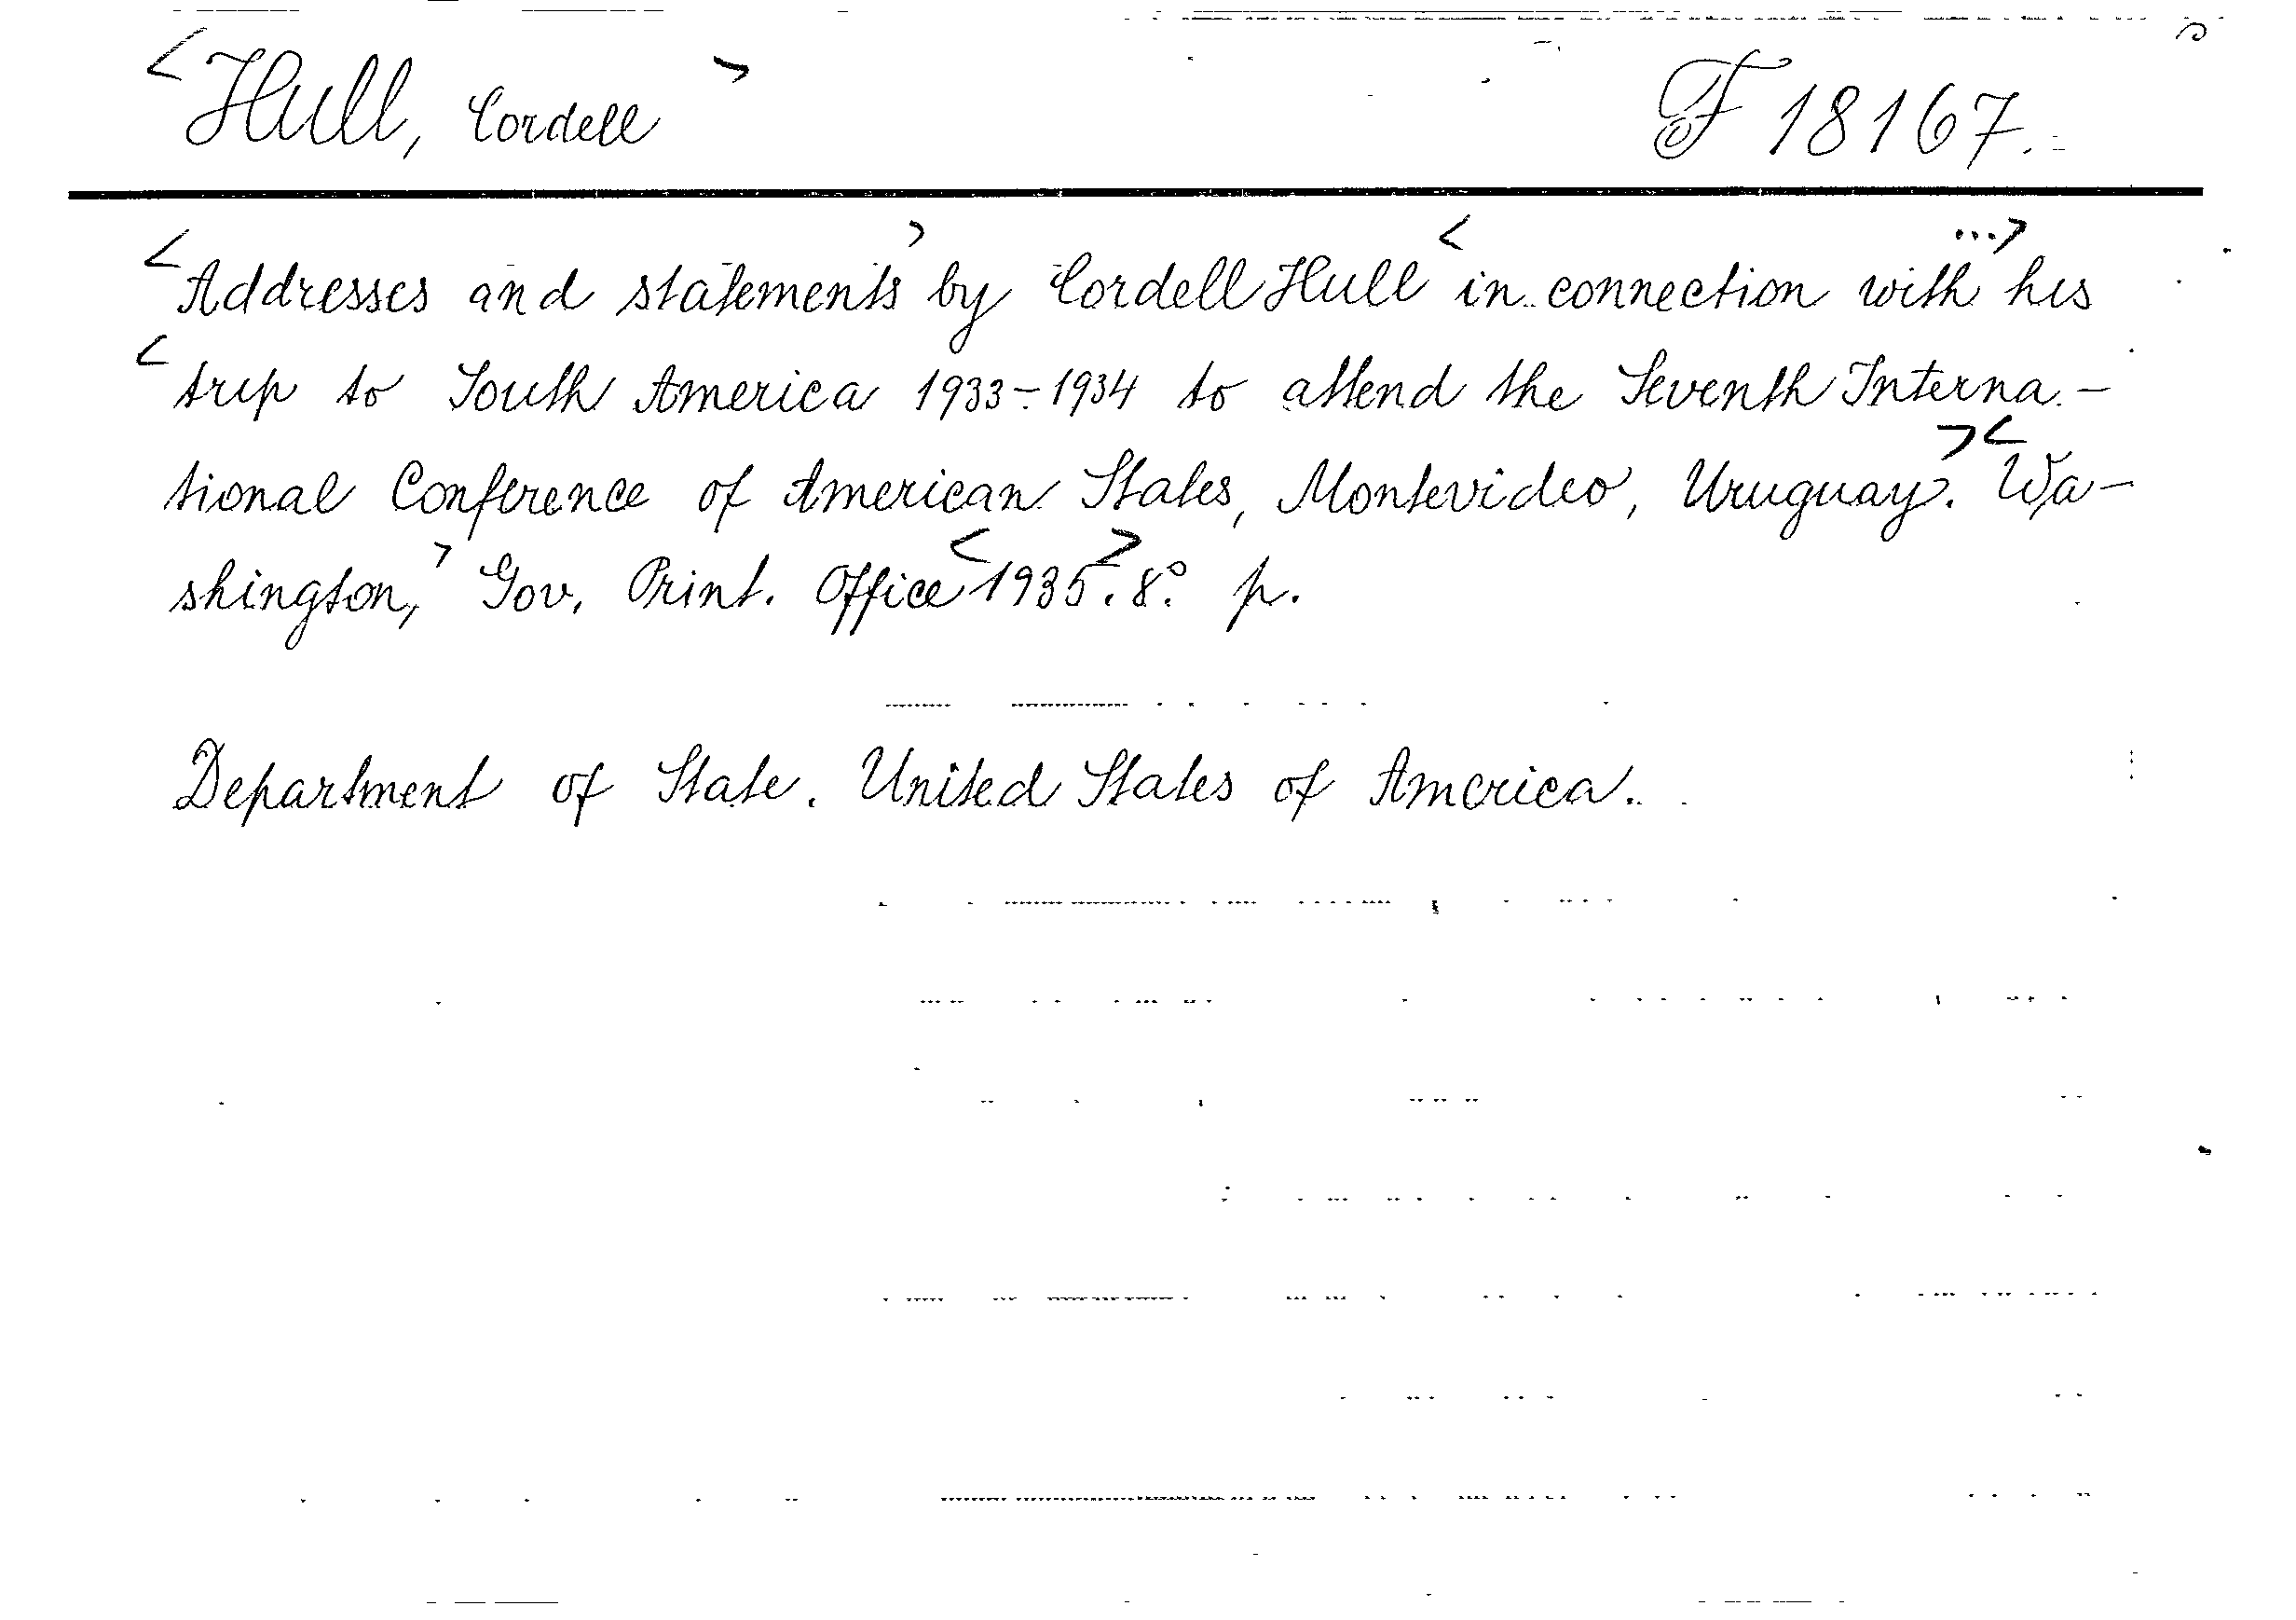 <Hull, Cordell> F 18167.
<Addresses and statements> by Cordell Hull <in connection with ...> his
<trip to South America 1933-1934 to attend the Seventh Interna-
tional Conference of American States, Montevideo, Uruguay.> <Wa-
shington,> Gov. Print. Office <1935>. 8.° p.
Department of State. United States of America.